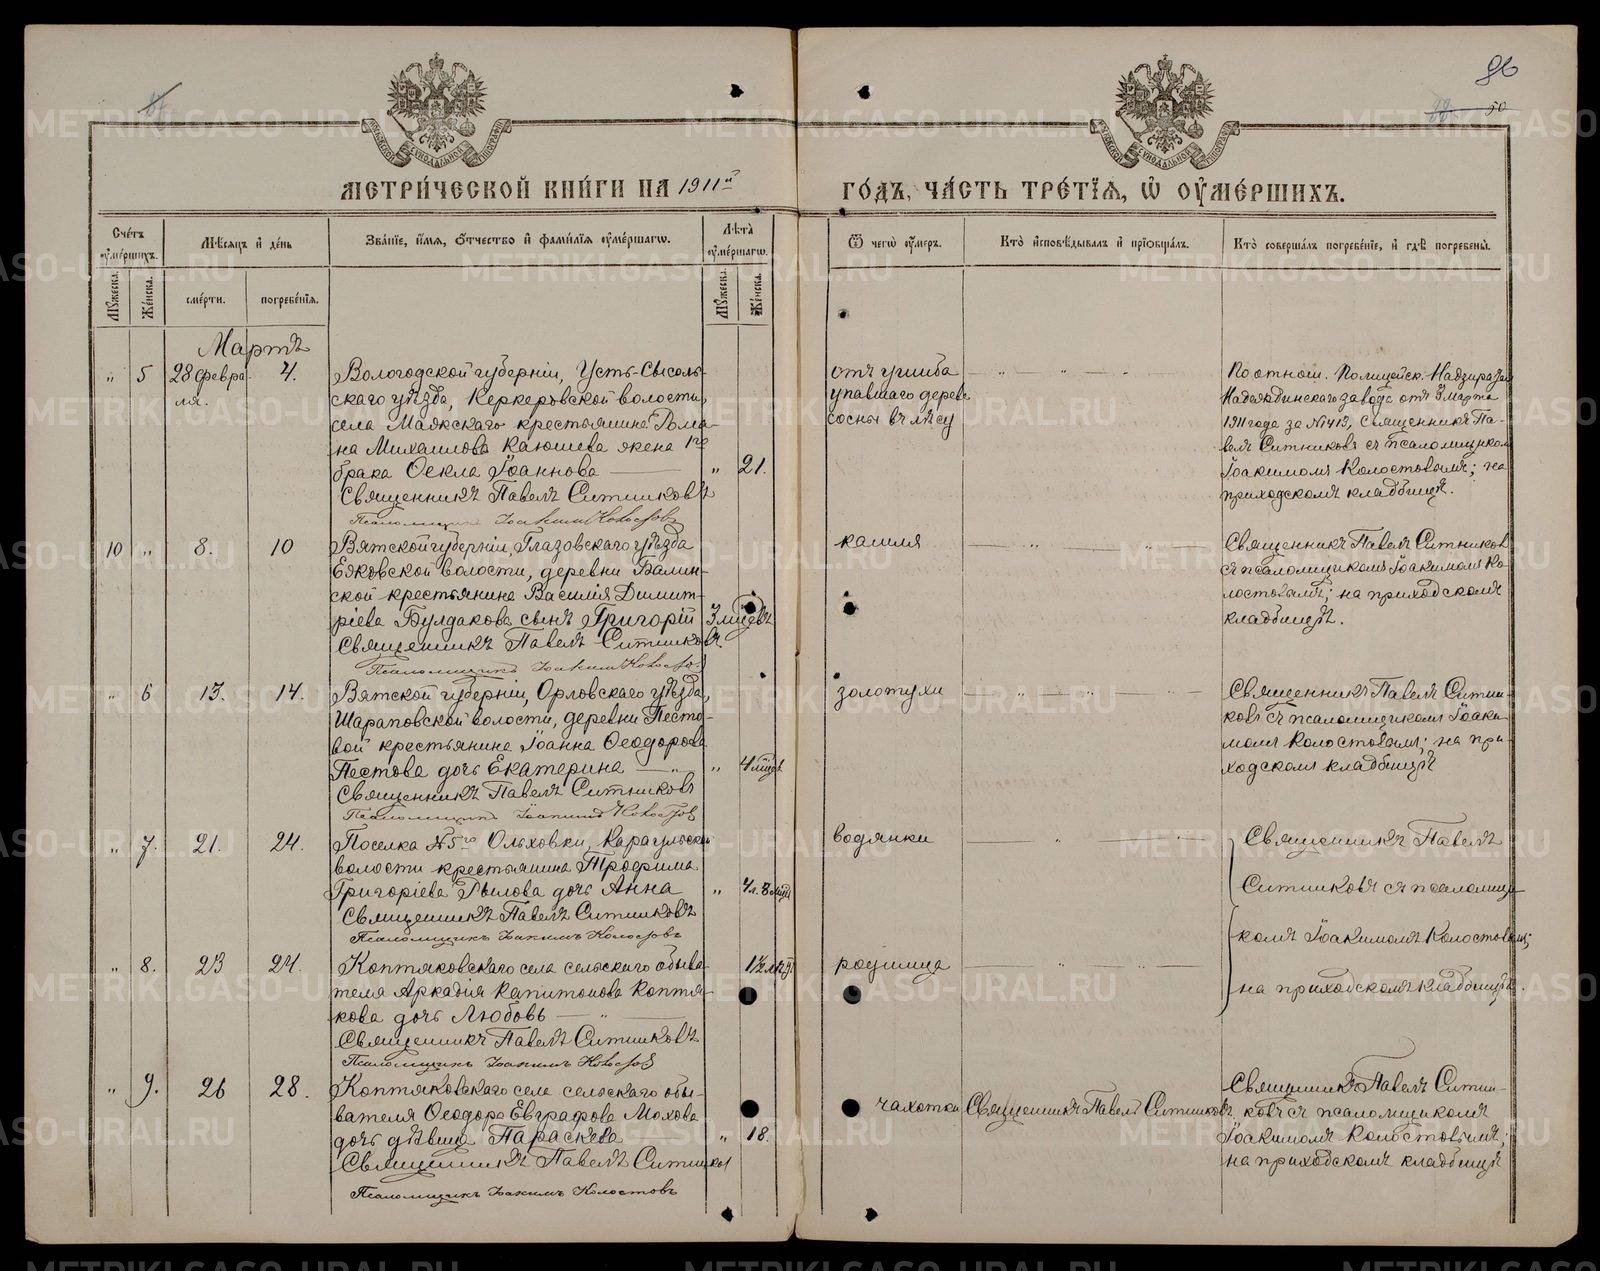 96
50
МЕТРИ́ЧЕСКОЙ КНИ́ГИ НА 1911й
ГО́ДЪ, ЧА́СТЬ ТРЕ́ТІѦ, Ѡ ОУ҆МЕ́РШИХЪ.
Сче́тъ оу҆ме́ршихъ.
Мѣ́сяцъ и҆ де́нь
Зва́ніе, и҆́мя, ѻ҆́тчество и҆ фами́лія оу҆ме́ршагѡ.
Лѣ́та оу҆ме́ршагѡ.
Ѿ чегѡ̀ оу҆́меръ.
Кто̀ и҆сповѣ́дывалъ и҆ прїѡбща́лъ.
Кто̀ соверша́лъ погребе́ніе, и҆ гдѣ̀ погребены̀.
Мꙋ́жеска.
Же́нска.
сме́рти.
погребе́нія.
Мꙋ́жеска.
Же́нска.
Мартъ
„ 5 28 февра- 4.
ля.
Вологодской губерніи, Усть-Сысоль-
скаго уѣзда, Керкеровской волости,
села Маякскаго крестьянина Рома-
на Михаилова Каюшева жена 1го
брака Ѳекла Іоаннова „ 21.
Священникъ Павелъ Ситниковъ
Псаломщикъ Іоакимъ Колостовъ
отъ ушиба
упавшаго дерева
сосны въ лѣсу
По отнош. Полицейск. Надзирателя
Надеждинскаго завода отъ 3 Марта
1911 года за №413, Священникъ Па-
велъ Ситниковъ съ псаломщикомъ
Іоакимомъ Колостовымъ; на
приходскомъ кладбищѣ.
10 „ 8. 10
Вятской губерніи, Глазовскаго уѣзда
волости, деревни Балин-
ской крестьянина Василія Димит-
ріева Булдакова сынъ Григорій 3 мѣсяцевъ
Священникъ Павелъ Ситниковъ
Псаломщикъ Іоакимъ Колостовъ
кашля
Священникъ Павелъ Ситниковъ
съ псаломщикомъ Іоакимомъ Ко-
лостовымъ; на приходскомъ
кладбищѣ.
„ 6 13. 14.
Вятской губерніи, Орловскаго уѣзда,
Шараповской волости, деревни Песто-
вой крестьянина Іоанна Ѳеодорова
Пестова дочь Екатерина „ 4 мѣс.
Священникъ Павелъ Ситниковъ
Псаломщикъ Іоакимъ Колостовъ
золотухи
Священникъ Павелъ Ситни-
ковъ съ псаломщикомъ Іоаки-
момъ Колостовымъ; на при-
ходскомъ кладбищѣ
„ 7. 21. 24.
Поселка №5го Ольховки, Караульской
волости крестьянина Трофима
Григоріева Рылова дочь Анна „ 4 л. 8 мѣс.
Священникъ Павелъ Ситниковъ
Псаломщикъ Іоакимъ Колостовъ
водянки
Священникъ Павелъ
Ситниковъ съ псаломщи-
комъ Іоакимомъ Колостовымъ;
на приходскомъ кладбищѣ.
„ 8. 23 24.
Коптяковскаго села сельскаго обыва-
теля Аркадія Капитонова Коптя-
кова дочь Любовь
Священникъ Павелъ Ситниковъ
Псаломщикъ Іоакимъ Колостовъ
родимца
„ 9. 26 28.
Коптяковскаго села сельскаго обы-
вателя Ѳеодора Евграфова Мохова
дочь дѣвица Параскева „ 18.
Священникъ Павелъ Ситников
Псаломщикъ Іоакимъ Колостовъ
чахотки
Священникъ Павелъ Ситниковъ
Священникъ Павелъ Ситни-
ковъ съ псаломщикомъ
Іоакимомъ Колостовымъ;
на приходскомъ кладбищѣ
METRIKI.GASO-URAL.RU